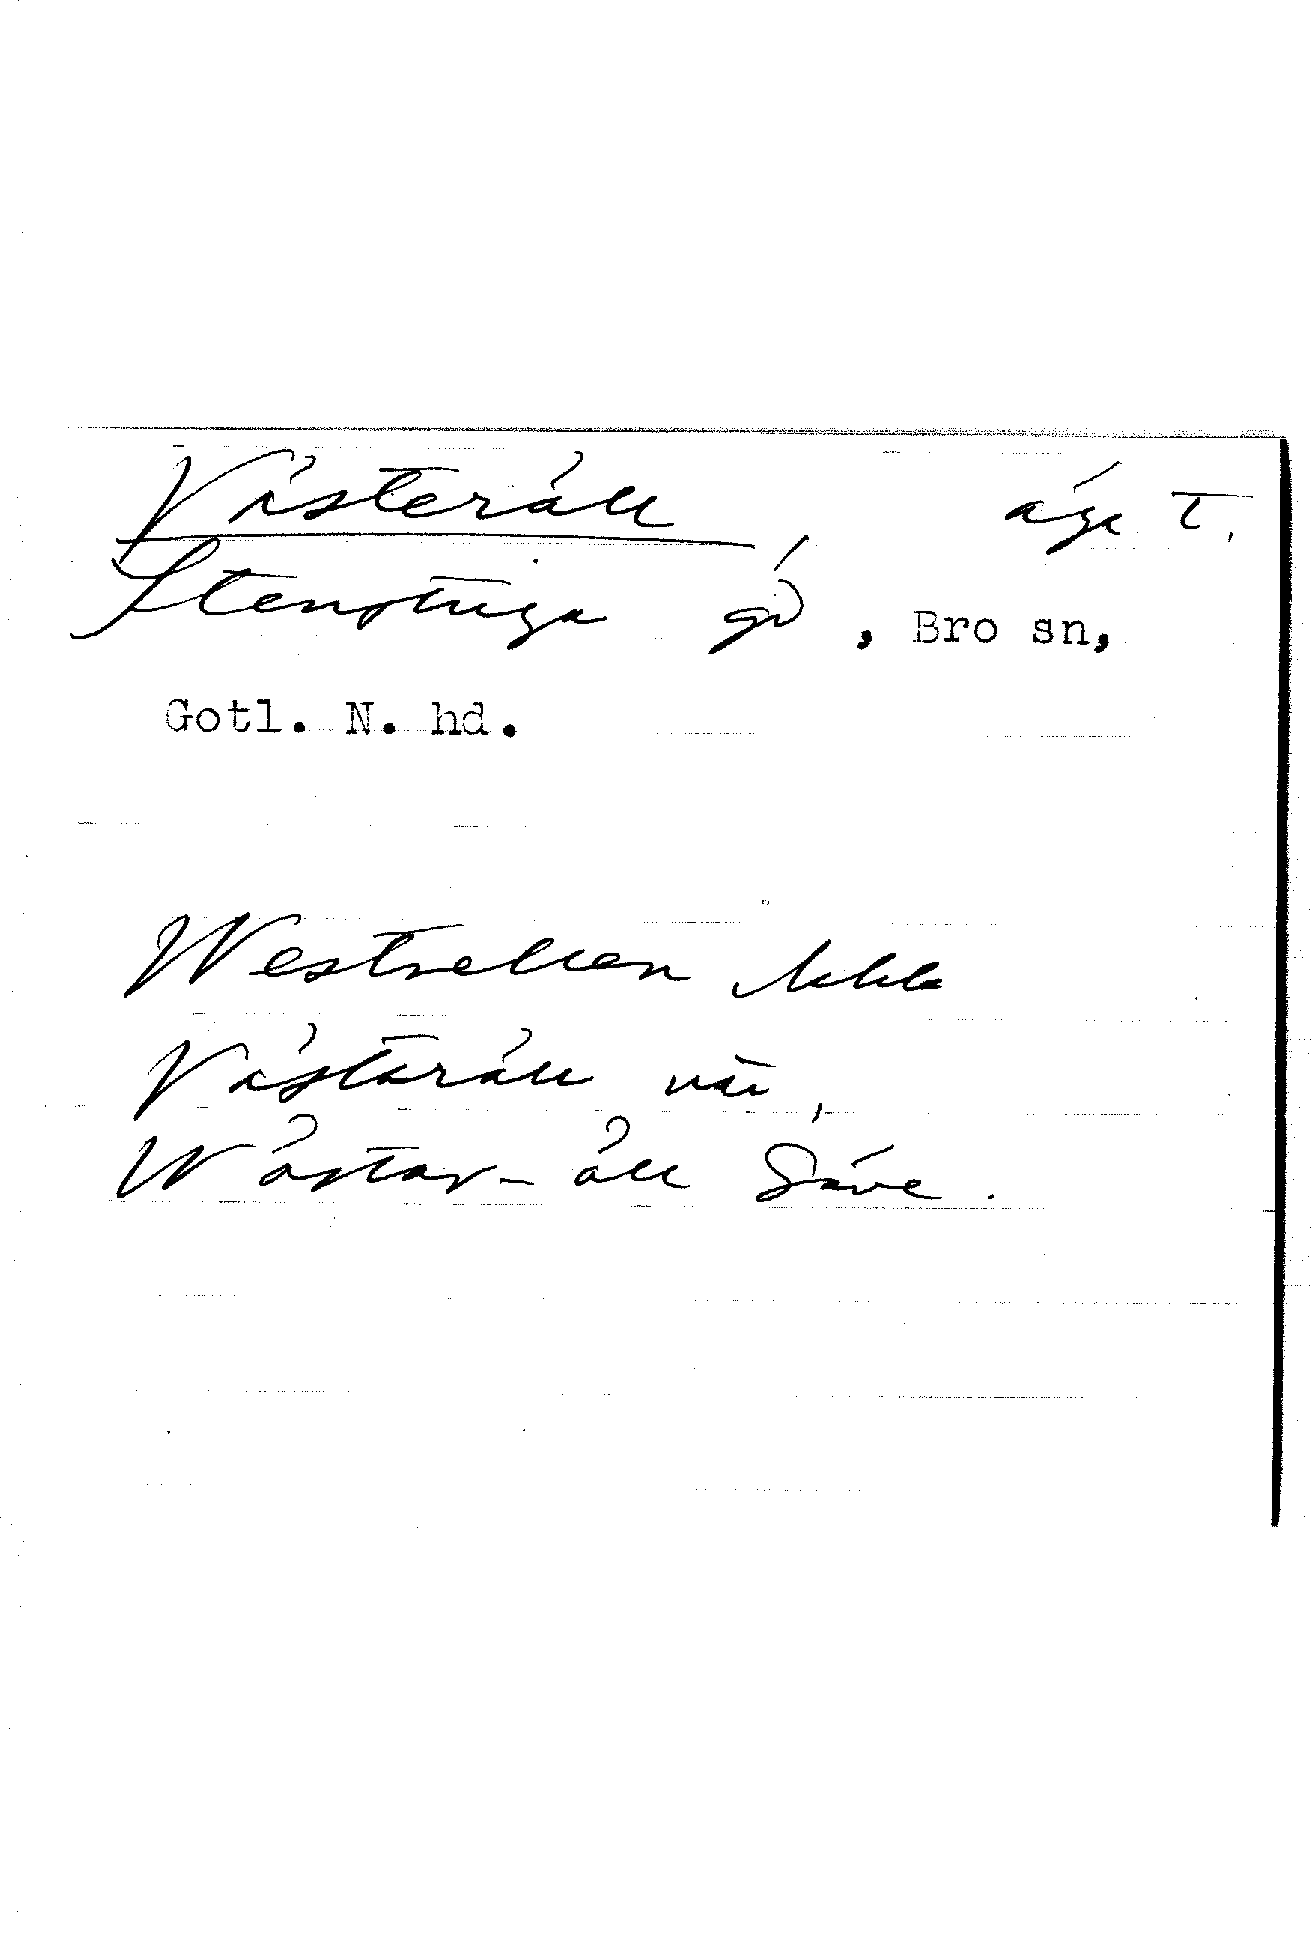 Västeräll, äga t.
Stenstuga gd, Bro sn,
Gotl. N. hd.
Westrellen
Västaräll
Wåstar-åll Säve.